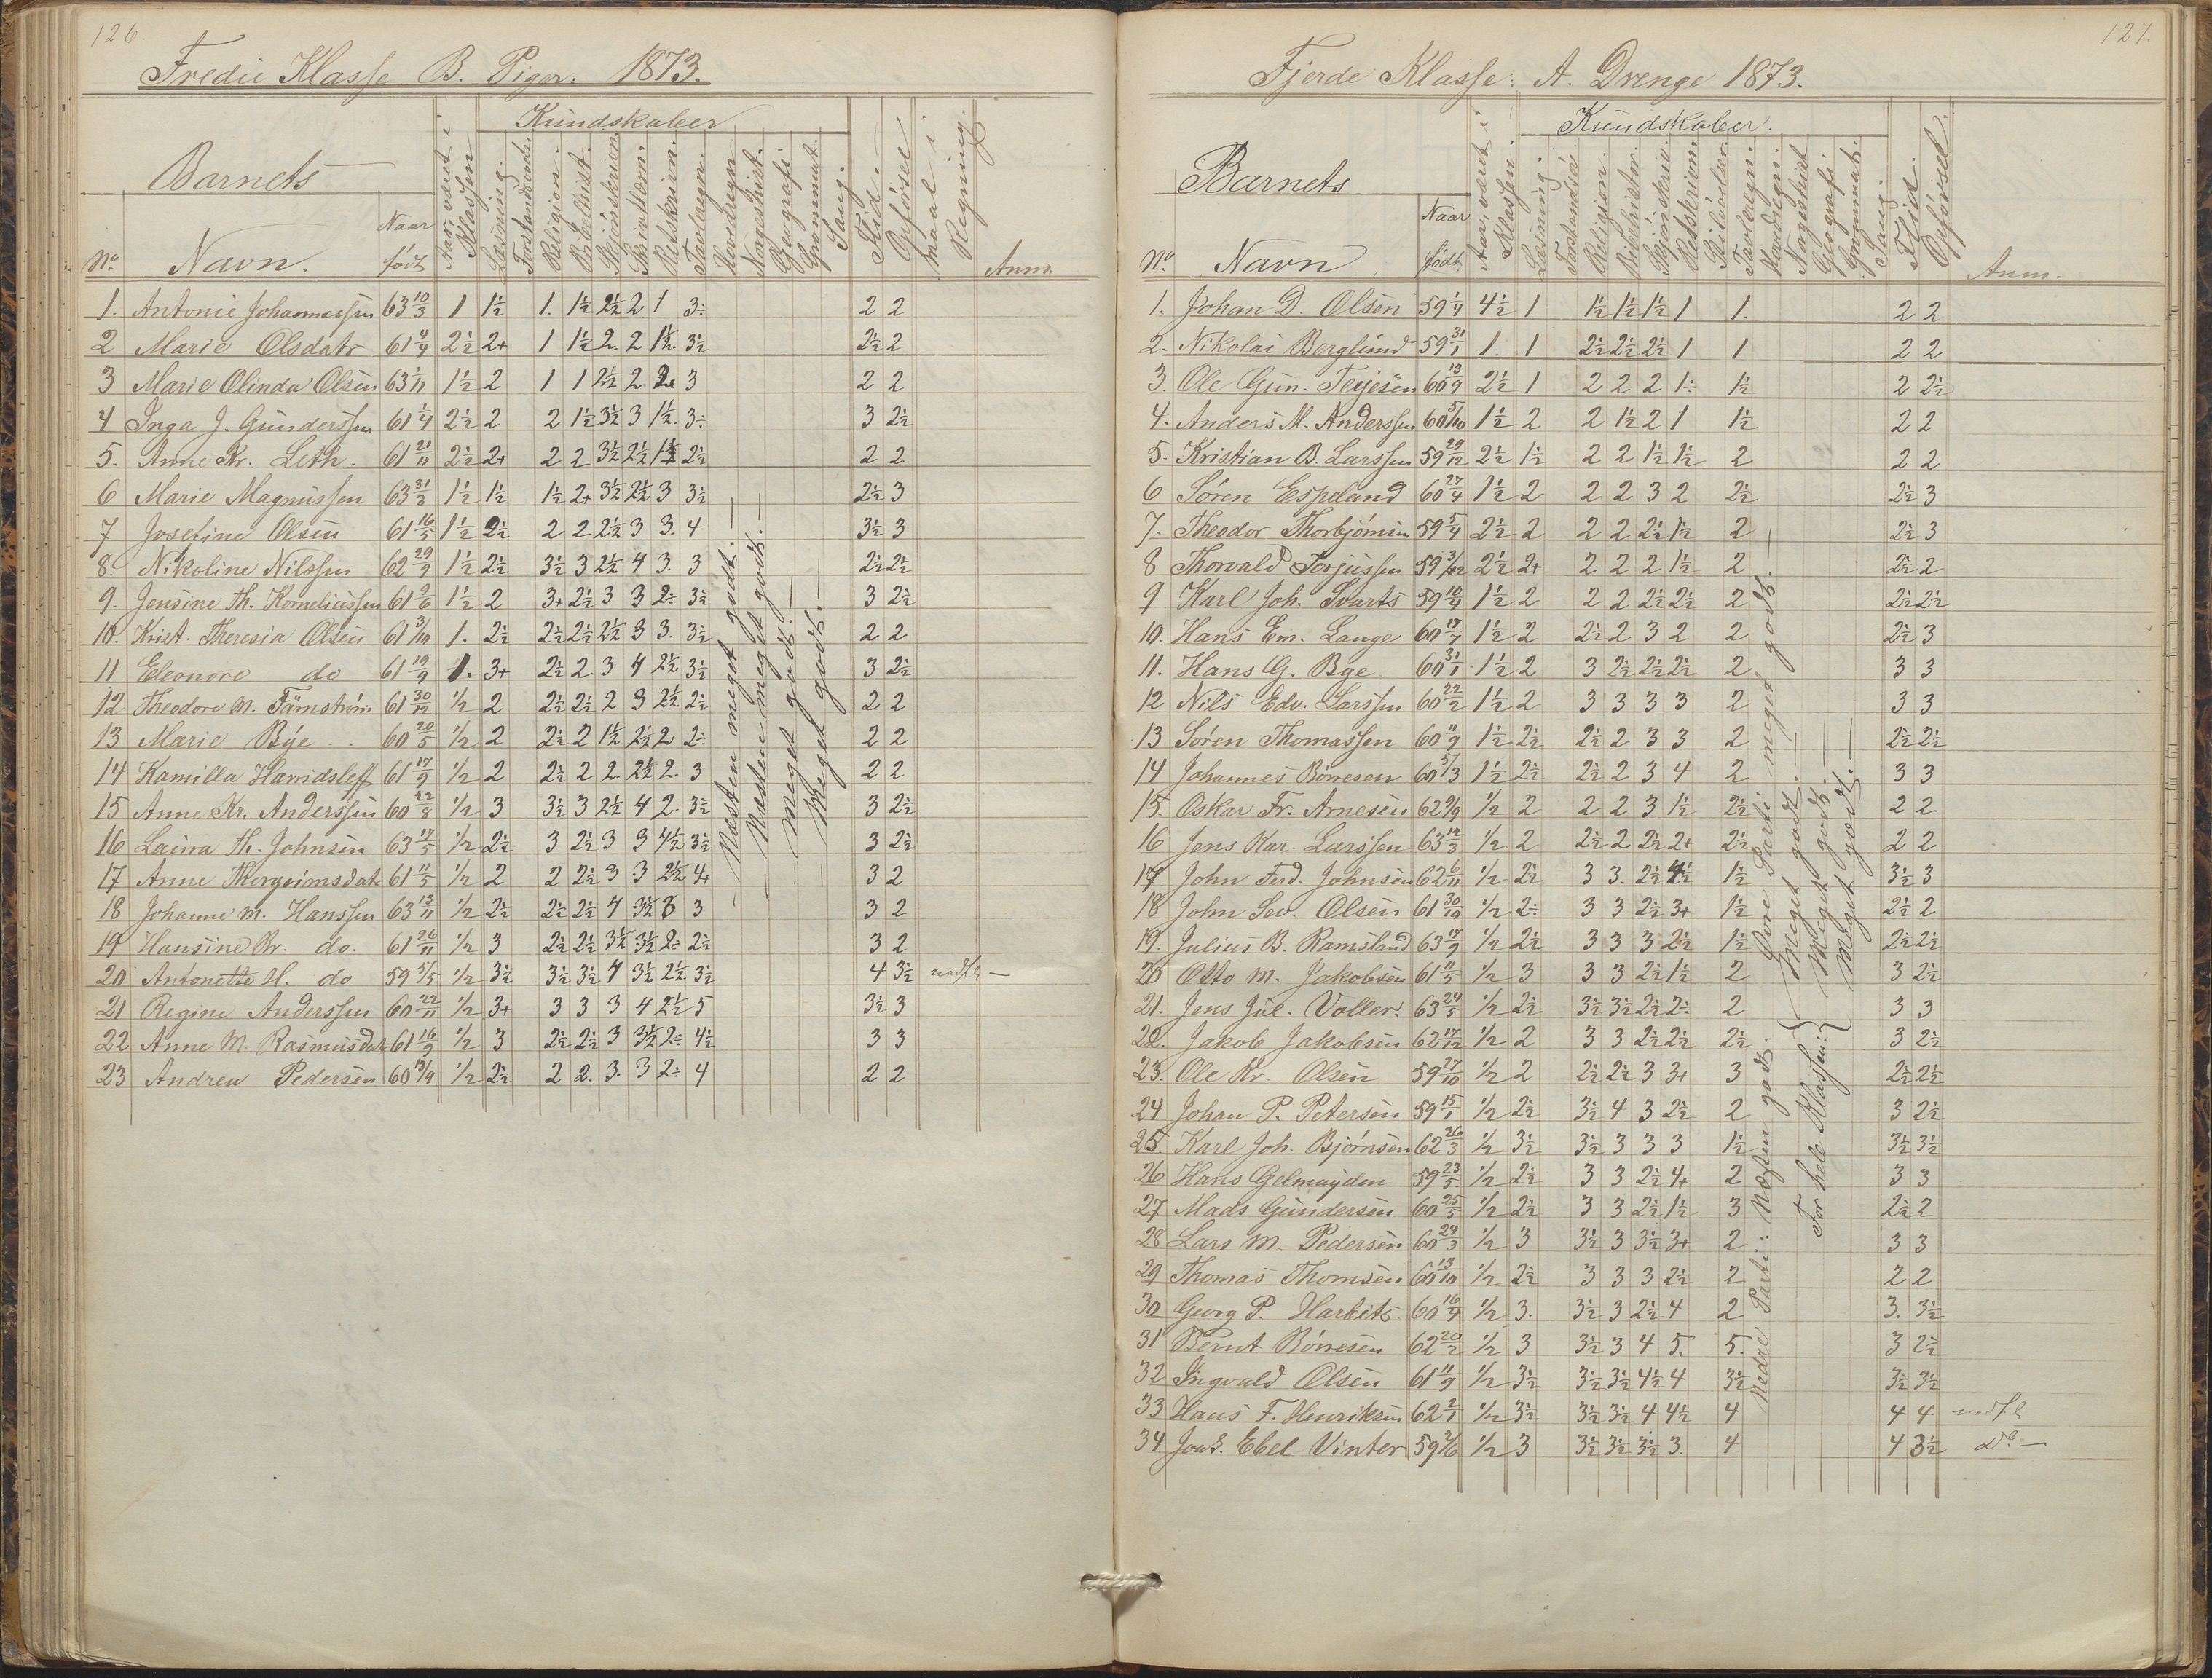 126.
Tredie Klasse B. Piger. 1873.
Barnets
Aar, været i Klassen
Kundskaber
No. Navn. Naar født
Læsning. Religion. Bibelhist. Skjönskrivn. Retskrivn. Tavleregn. Hovedregn. Norgeshist. Geografi Grammat. Sang. Flid. Opförsel Maal i Regning. Anm.
1. Antonie Johannessen 63 10/3 1 1½ 1. 1½ 2½ 2 1 3÷ 2 2
2 Marie Olsdatr 61 4/4 2½ 2+ 1 1½ 2. 2 1½. 3½ 2½ 2
3 Marie Olinda Olsen 63 1/11 1½ 2 1 1 2½ 2 2 3 2 2
4 Inga J. Gunderssen 61 1/4 2½ 2 2 1½ 3½ 3 1½. 3÷ 3 2½
5. Anne Kr. Leth. 61 21/11 2½ 2+ 2 2 3½ 2½ 1½ 2½ 2 2
6 Marie Magnussen 63 31/3 1½ 1½ 1½ 2+ 3½ 2½ 3 3½ 2½ 3
7 Josefine Olsen 61 16/5 1½ 2½ 2 2 2½ 3 3. 4 3½ 3
8. Nikoline Nilssen 62 29/9 1½ 2½ 3½ 3 2½ 4 3. 3 2½ 2½
9. Jensine Th. Korneliussen 61 9/6 1½ 2 3+ 2½ 3 3 2÷ 3½ 3 2½
10. Krist. Theresia Olsen 61 3/10 1. 2½ 2½ 2½ 2½ 3 3. 3½ 2 2
11 Eleonore do 61 19/9 1. 3+ 2½ 2 3 4 2½ 3½ 3 2½
12 Theodore M. 61 30/12 ½ 2 2½ 2½ 2 3 2½ 2½ 2 2
13 Marie Bÿe 60 20/5 ½ 2 2½ 2 1½ 2½ 2 2÷ 2 2
14 Kamilla Harridsleff 61 17/9 ½ 2 2½ 2 2. 2½ 2. 3 2 2
15 Anne Kr. Anderssen 60 22/8 ½ 3 3½ 3 2½ 4 2. 3½ 3 2½
16 Laura Th. Johnsen 63 17/5 ½ 2½ 3 2½ 3 3 4½ 3½ 3 2½
17 Anne Thorgrimsdatr 61 11/5 ½ 2 2 2½ 3 3 2½ 4+ 3 2
18 Johanne M. Hanssen 63 13/11 ½ 2½ 2½ 2½ 4 3½ 3 3 3 2
19 Hansine Kr. do. 61 26/11 ½ 3 2½ 2½ 3½ 3½ 2÷ 2½ 3 2
20 Antonette H. do 59 5/5 ½ 3½ 3½ 3½ 4 3½ 2½ 3½ 4 3½
21 Regine Anderssen 60 22/11 ½ 3+ 3 3 3 4 2½ 5 3½ 3
22 Anne M. Rasmusdatr 61 16/9 ½ 3 2½ 2½ 3 3½ 2÷ 4½ 3 3
23 Andrea Pedersen 60 13/9 ½ 2½ 2 2. 3. 3 2÷ 4 2 2
Næsten meget godt. —
Næsten meget godt. —
— Meget godt. —
— Meget godt. —
127.
Fjerde Klasse: A. Drenge 1873.
Barnets
Aar, været i Klassen.
Kundskaber.
No. Navn Naar født
Læsning. Religion. Bibelhistor. Skjönskriv. Retskrivn. Stilövelser. Tavleregn. Hovdregn. Norgeshist Geografi Grammat. Sang. Flid. Opförsel. Anm.
1. Johan D. Olsen 59 1/4 4½ 1 1½ 1½ 1½ 1 1. 2 2
2. Nikolai Berglund 59 31/1 1. 1 2½ 2½ 2½ 1 1 2 2
3. Ole Gun. Terjesen 60 13/9 2½ 1 2 2 2 1÷ 1½ 2 2½
4. Anders M. Anderssen 60 5/10 1½ 2 2 1½ 2 1 1½ 2 2
5. Kristian B. Larssen 59 29/12 2½ 1½ 2 2 1½ 1½ 2 2 2
6 Sören Espeland 60 27/4 1½ 2 2 2 3 2 2½ 2½ 3
7. Theodor Thorbjörnsen 59 5/4 2½ 2 2 2 2½ 1½ 2 2½ 3
8 Thorvald Torjussen 59 3/12 2½ 2+ 2 2 2 1½ 2 2½ 2
9 Karl Joh. Svarts 59 10/4 1½ 2 2 2 2½ 2½ 2 2½ 2½
10. Hans Em. Lange 60 17/7 1½ 2 2½ 2 3 2 2 2½ 3
11. Hans G. Bye 60 31/1 1½ 2 3 2½ 2½ 2½ 2 3 3
12 Nils Edv. Larssen 60 22/2 1½ 2 3 3 3 3 2 3 3
13 Sören Thomassen 60 11/9 1½ 2½ 2½ 2 3 3 2 2½ 2½
14 Johannes Börresen 60 3/3 1½ 2½ 2½ 2 3 4 2 3 3
15. Oskar Fr. Arnesen 62 9/9 ½ 2 2 2 3 1½ 2½ 2 2
16 Jens Kar. Larssen 63 12/3 ½ 2 2½ 2 2½ 2+ 2½ 2 2
17 John Ferd. Johnsen 62 6/11 ½ 2½ 3 3. 2½ 4½ 1½ 3½ 3
18 John Sev. Olsen 61 30/10 ½ 2÷ 3 3 2½ 3+ 1½ 2½ 2
19. Julius B. Ramsland 63 17/9 ½ 2½ 3 3 3 2½ 1½ 2½ 2½
20 Otto M. Jakobsen 61 11/5 ½ 3 3 3 2½ 1½ 2 3 2½
21. Jens Jul. Voller. 63 24/5 ½ 2½ 3½ 3½ 2½ 2÷ 2 3 3
22. Jakob Jakobsen 62 17/12 ½ 2 3 3 2½ 2½ 2½ 3 2½
23. Ole Kr. Olsen 59 27/10 ½ 2 2½ 2½ 3 3+ 3 2½ 2½
24 Johan P. Petersen 59 15/1 ½ 2½ 3½ 4 3 2½ 2 3 2½
25 Karl Joh. Björnsen 62 26/3 ½ 3½ 3½ 3 3 3 1½ 3½ 3½
26 Hans Gelmuyden 59 23/5 ½ 2½ 3 3 2½ 4+ 2 3 3
27 Mads Gundersen 60 25/5 ½ 2½ 3 3 2½ 1½ 3 2½ 2
28 Lars M. Pedersen 60 24/3 ½ 3 3½ 3 3½ 3+ 2 3 3
29 Thomas Thomsen 60 13/10 ½ 2½ 3 3 3 2½ 2 2 2
30 Georg P. Harbitz 60 16/9 ½ 3. 3½ 3 2½ 4 2 3. 3½
31 Bernt Börresen 62 20/2 ½ 3 3½ 3 4 5. 5. 3 2½
32 Ingvald Olsen 61 11/9 ½ 3½ 3½ 3½ 4½ 4 3½ 3½ 3½
33 Hans F. Henriksen 62 2/1 ½ 3½ 3½ 3½ 4 4½ 4 4 4
34 Ebel Vinter 59 2/6 ½ 3 3½ 3½ 3½ 3. 4 4 3½ do. —
Nedre Parti: Næsten godt. Övre Parti meget godt. —
For hele Klassen: { Meget godt. — Meget godt. — Meget godt. —